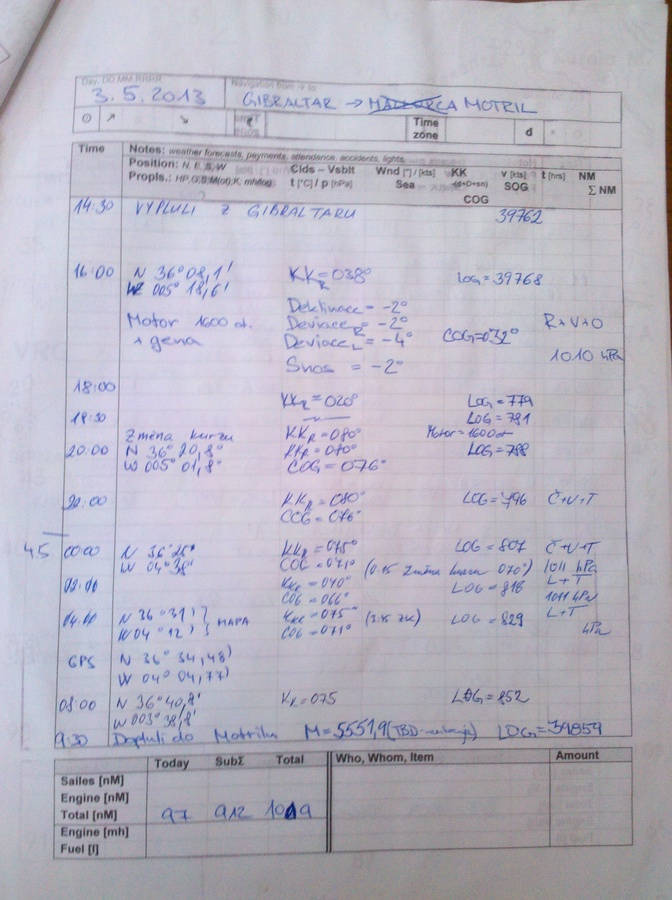 Day, DD.MM.RRRR Navigation from -> to
3.5.2013 GIBRALTAR → MALLORCA MOTRIL
Time zone d
Time Notes: weather forecasts, payments, attendance, accidents, lights
Position: N, E, S, W Clds – Vsblt Wnd [°] / [kts] KK v [kts] t [hrs] NM
Propls.: HP,G,S,M(ot),K, mh/log t [°C] / p [hPa] Sea (d+D+sn) SOG Σ NM
COG
14:30 VYPLULI Z GIBRALTARU 39762
16:00 N 36°08,1' KK_R = 038° LOG = 39768
W 005° 18,6'
Deklinace = -2°
Motor 1600 ot. Deviace_R = -2° R+V+O
+ gena Deviace_L = -4° COG = 032°
1010 hPa
Snos = -2°
18:00
KK_R = 020° LOG = 779
18:30 LOG = 781
Změna kurzu KK_R = 080° Motor = 1600 ot
20:00 N 36° 20,8° KK_R = 080° LOG = 788
W 005° 01,8° COG = 076°
22:00 KK_R = 080° LOG = 796 Č+V+T
COG = 076°
4.5 00:00 N 36° 25' KK_R = 075° LOG = 807 Č+V+T
W 04° 38' COG = 071° (0:15 Změna kurzu 070°) 1011 hPa
02:00 KK_R = 070° LOG = 818 L+T
COG = 066° 1011 hPa
04:00 N 36° 31' } MAPA KK_R = 075° (3:45 ZK) LOG = 829 L+T
W 04° 12' COG = 071° hPa
GPS N 36° 34,48'
W 04° 04,77'
08:00 N 36° 40,8' K_R = 075 LOG = 852
W 003° 38,8'
9:30 Dopluli do Motrilu M = 5551,9 LOG = 39859
Today SubΣ Total Who, Whom, Item Amount
Sailes [nM]
Engine [nM]
Total [nM] 97 912 1009
Engine [mh]
Fuel [l]